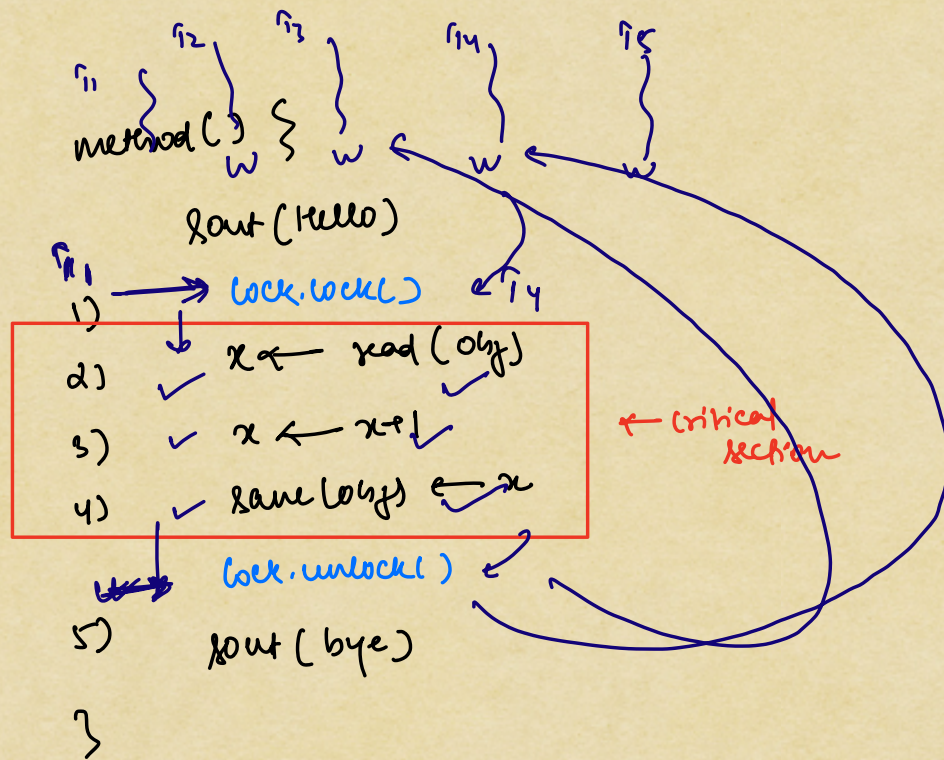 T1 T2 T3 T4 T5
method( ) {
W W W W
sout(Hello)
T1
1) lock.lock() T4
2) x ← read(obj)
3) x ← x+1
← critical section
4) save(obj) ← x
lock.unlock()
5) sout(bye)
}